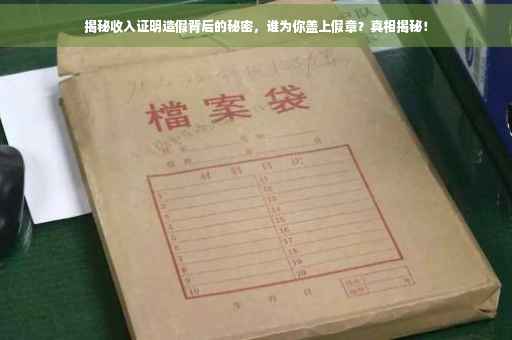 揭秘收入证明造假背后的秘密，谁为你盖上假章？真相揭秘！
檔案袋
材料目次
1 11
2 12
3 13
4 14
5 15
6 16
7 17
8 18
9 19
10 20
年月日